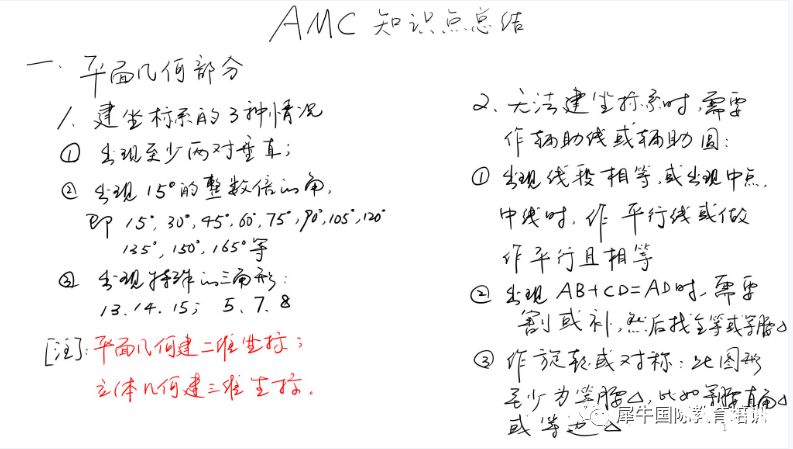 AMC 知识点总结
一. 平面几何部分
1. 建坐标系的3种情况
① 出现至少两对垂直;
② 出现15°的整数倍的角,
即 15°, 30°, 45°, 60°, 75°, 90°, 105°, 120°
135°, 150°, 165° 等
③ 出现特殊的三角形:
13. 14. 15; 5. 7. 8
[注]: 平面几何建二维坐标;
立体几何建三维坐标.
2. 无法建坐标系时, 需要
作辅助线或辅助圆:
① 出现线段相等, 或出现中点.
中线时. 作平行线或做
作平行且相等
② 出现 AB+CD=AD时, 需要
割或补, 然后找全等或等腰△
③ 作旋转或对称: 此图形
至少为等腰△, 比如等腰直角△
或等边△
犀牛国际教育培训